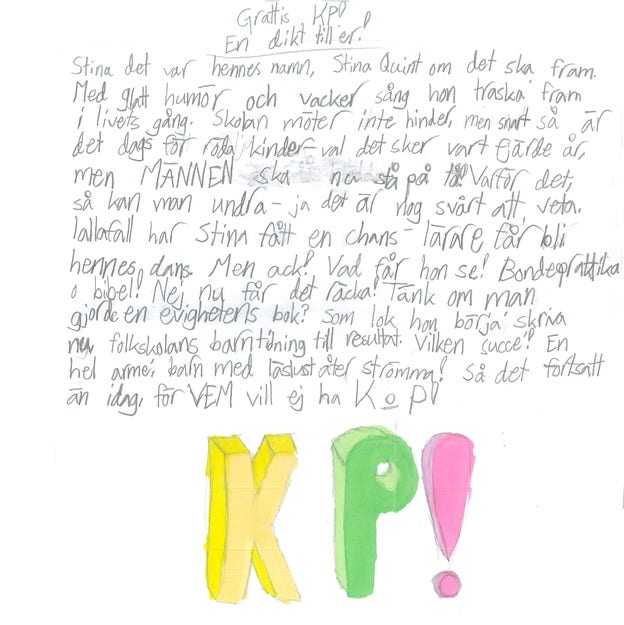 Grattis KP!
En dikt till er!
Stina det var hennes namn, Stina Quint om det ska fram.
Med glatt humör och vacker sång hon traska fram
i livets gång. Skolan möter inte hinder, men snart så är
det dags för röda kinder - val det sker vart fjärde år,
men MÄNNEN ska stå på tå! Varför det,
så kan man undra - ja det är nog svårt att veta.
Iallafall har Stina fått en chans - lärare får bli
hennes dans. Men ack! Vad får hon se! Bondepraktika
o bibel! Nej nu får det räcka! Tänk om man
gjorde en evighetens bok? Som lok hon börja' skriva
nu folkskolans barntidning till resultat. Vilken succé! En
hel armé barn med läslust åter strömma! Så det fortsatt
än idag, för VEM vill ej ha K o P!
KP!